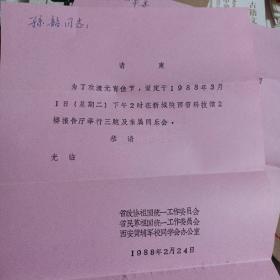 孙韶同志：
请柬
为了欢度元宵佳节，兹定于1988年3月
1日（星期二）下午2时在新城陕西省科技馆2
楼报告厅举行三胞及亲属同乐会。
恭请
光临
省政协祖国统一工作委员会
省民革祖国统一工作委员会
西安黄埔军校同学会办公室
1988年2月24日